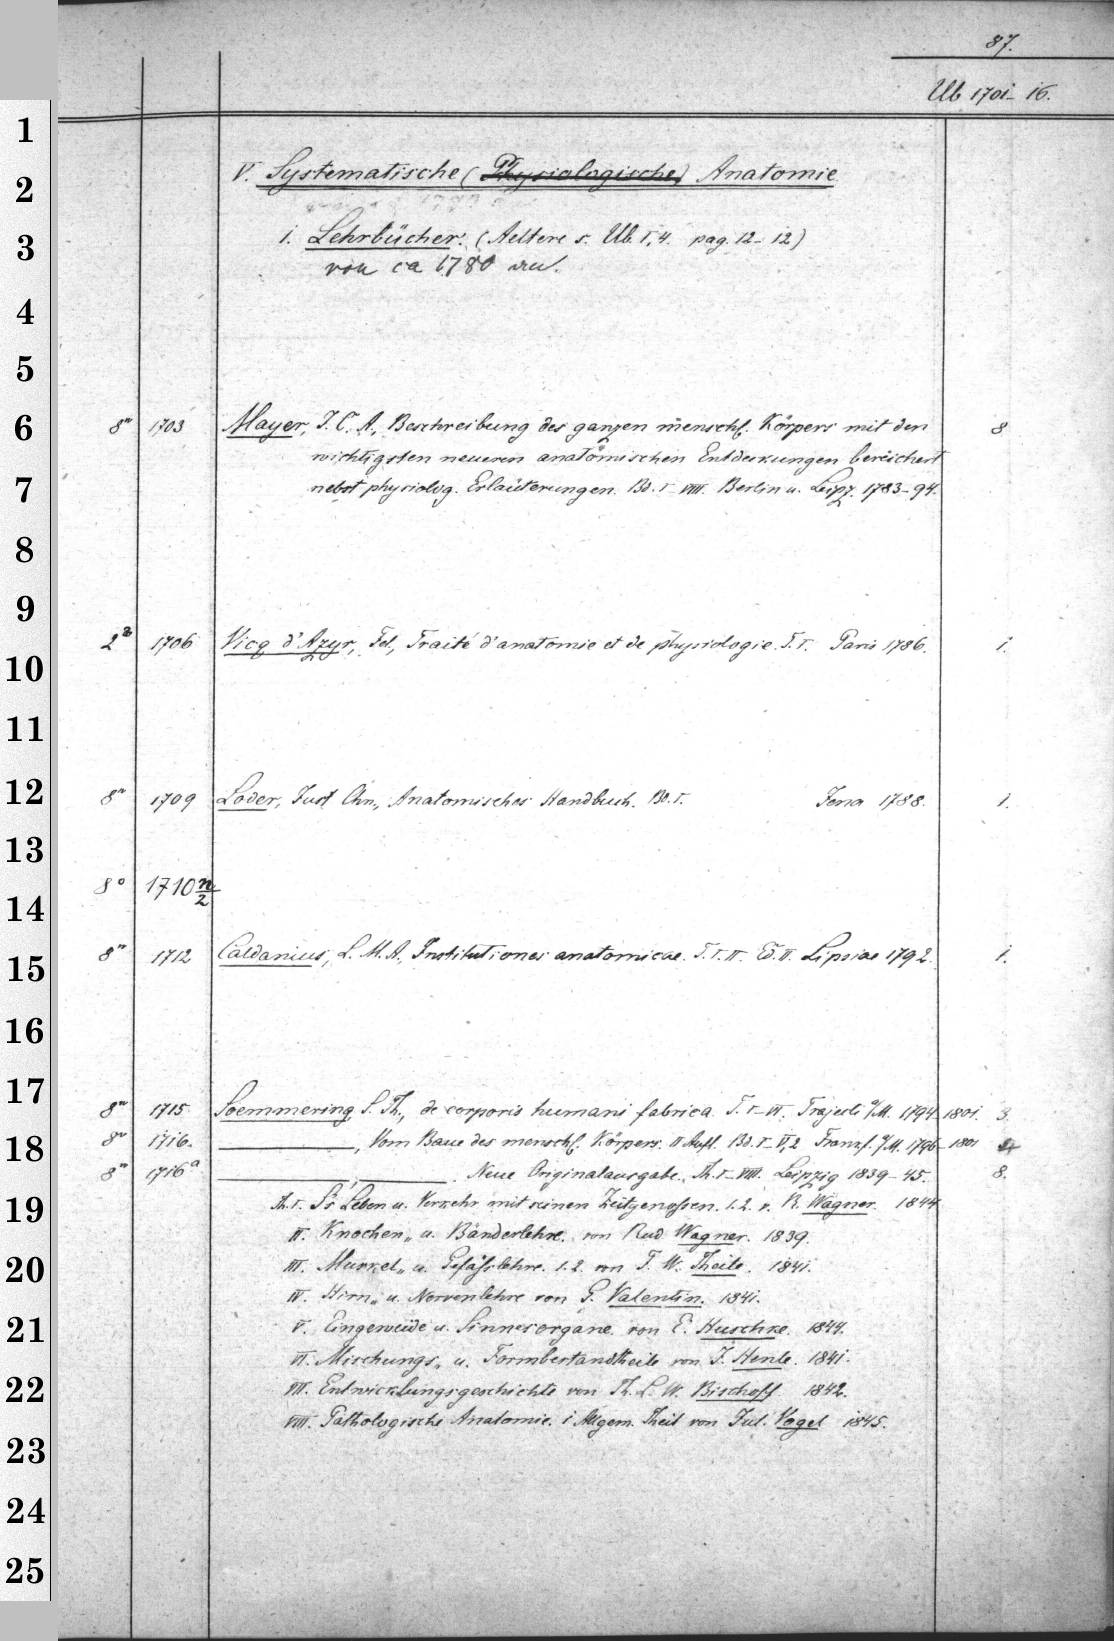 87.
Ub 1701–16.
1
2
3
4
5
6
7
8
9
10
11
12
13
14
15
16
17
18
19
20
21
22
23
24
25
V. Systematische (Physiologische) Anatomie
1. Lehrbücher. (Aeltere s. Ub. I,4. pag. 12–12)
von ca 1780 an.
8° 1703 Mayer, J. C. A., Beschreibung des ganzen menschl. Körpers mit den 8
wichtigsten neueren anatomischen Entdeckungen bereichert
nebst physiolog. Erläuterungen. Bd. I–VIII. Berlin u. Leipz. 1783–94.
2° 1706 Vicq d'Azyr, Fel., Traité d'anatomie et de physiologie. T. I. Paris 1786. 1.
8° 1709 Loder, Just Chn., Anatomisches Handbuch. Bd. I. Jena 1788. 1.
8° 1710 n/2
8° 1712 Caldanius, L. M. A., Institutiones anatomicae. T. I. II. Ed. II. Lipsiae 1792. 1.
8° 1715 Soemmering S. Th., de corporis humani fabrica. T. I–VI. Trajecti a/M. 1794–1801. 3.
8° 1716. ———, Vom Baue des menschl. Körpers. II Aufl. Bd. I–V,2 Frankf. a/M. 1796–1801
8° 1716a ———, ——— . Neue Originalausgabe. Th. I–VIII. Leipzig 1839–45. 8.
Th. I. S's Leben u. Verkehr mit seinen Zeitgenossen. 1. 2. v. R. Wagner. 1844
II. Knochen- u. Bänderlehre. von Rud Wagner. 1839.
III. Muskel- u. Gefässlehre. 1. 2. von F. W. Theile. 1841.
IV. Hirn- u. Nervenlehre von G. Valentin. 1841.
V. Eingeweide u. Sinnesorgane. von E. Huschke. 1844.
VI. Mischungs- u. Formbestandtheile von J. Henle. 1841.
VII. Entwicklungsgeschichte von Th. L. W. Bischoff 1842.
VIII. Pathologische Anatomie. 1 Allgem. Theil von Jul. Vogel 1845.